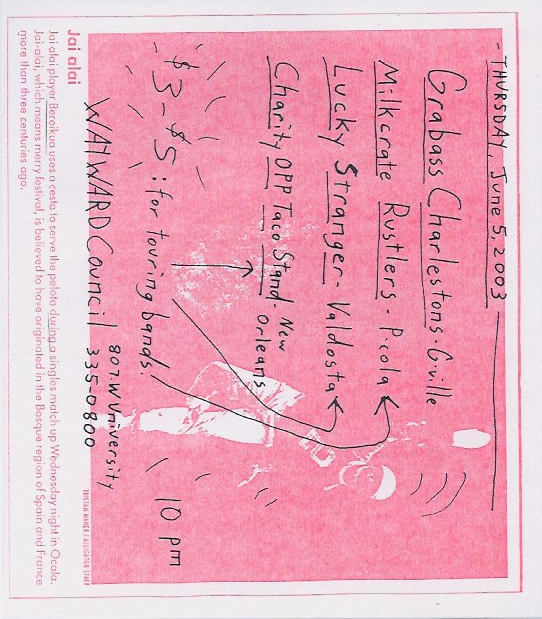 - THURSDAY, June 5, 2003
Grabass Charlestons - G-ville
Milkcrate Rustlers - P-cola
Lucky Stranger - Valdosta
Charity OPP Taco Stand - New
Orleans
$3-$5 : for touring bands!
10 pm
WAYWARD Council
807 W University
335-0800
TRISTAN HARPER / ALLIGATOR STAFF
Jai alai
Jai alai player Beroikua uses a cesta to serve the pelota during a singles match up Wednesday night in Ocala.
Jai-alai, which means merry festival, is believed to have originated in the Basque region of Spain and France
more than three centuries ago.